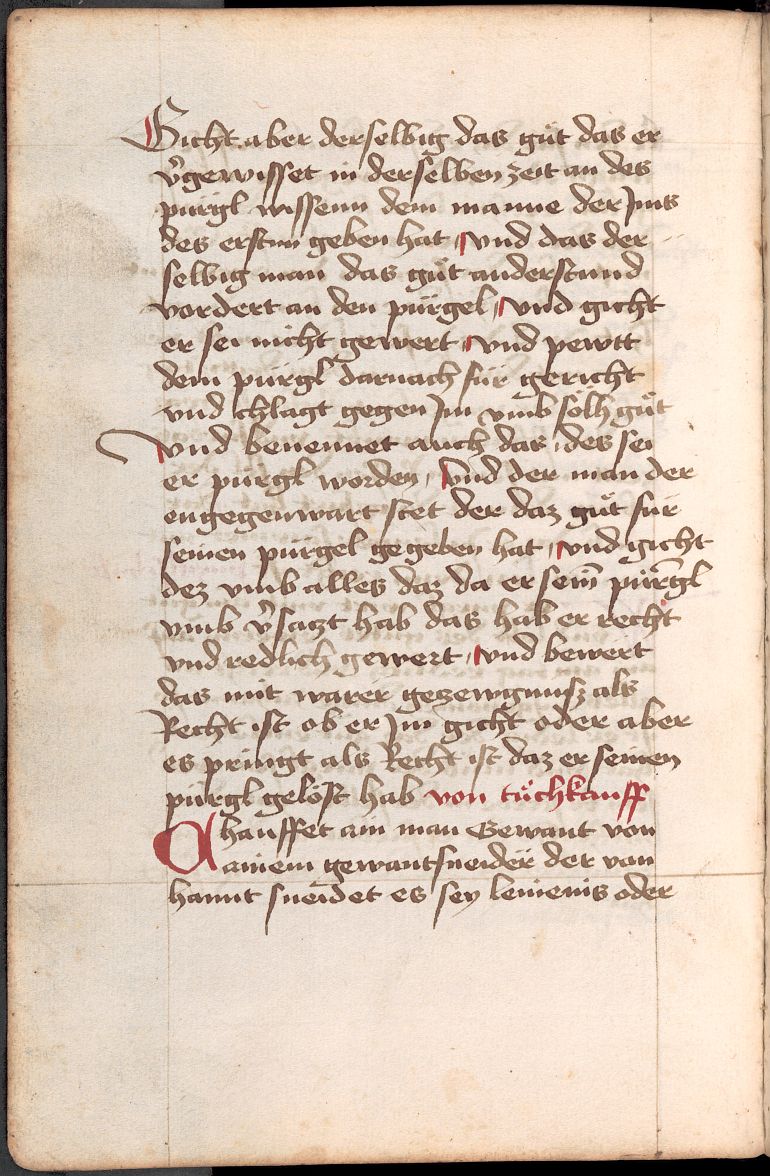 Gicht aber derselbig das guͤt das er
v̓gewisset in derselben zeit an des
purgl wissenn dem manne der Jms
des ersten geben hat / vnd das der
selbig man das guͤt anderstund
vordert an den pürgel / vnd gicht
er sei nicht gewert / vnd pewtt
dem pürgl darnach für gericht
vnd chlagt gegen Jm vmb soͤlh guͤt
vnd benennet auch das / des sei
er pürgl worden / vnd der man der
engegenwart stet der daz guͤt für
seinen pürgel gegeben hat / vnd gicht
dez vmb alles daz da er sein̄ pür̄gl
vmb v̓saczt hab das hab er recht
vnd redlich gewert / vnd bewert
das mit warer gezewgnusz als
Recht ist ob er Jm gicht oder aber
es pringt als Recht ist daz er seinen
pürgl geloͤst hab von tuͤchkauff
Chauffet ain man Gewant von
ainem gewantsneider der von
hannt sneidet es sey leinenis oder